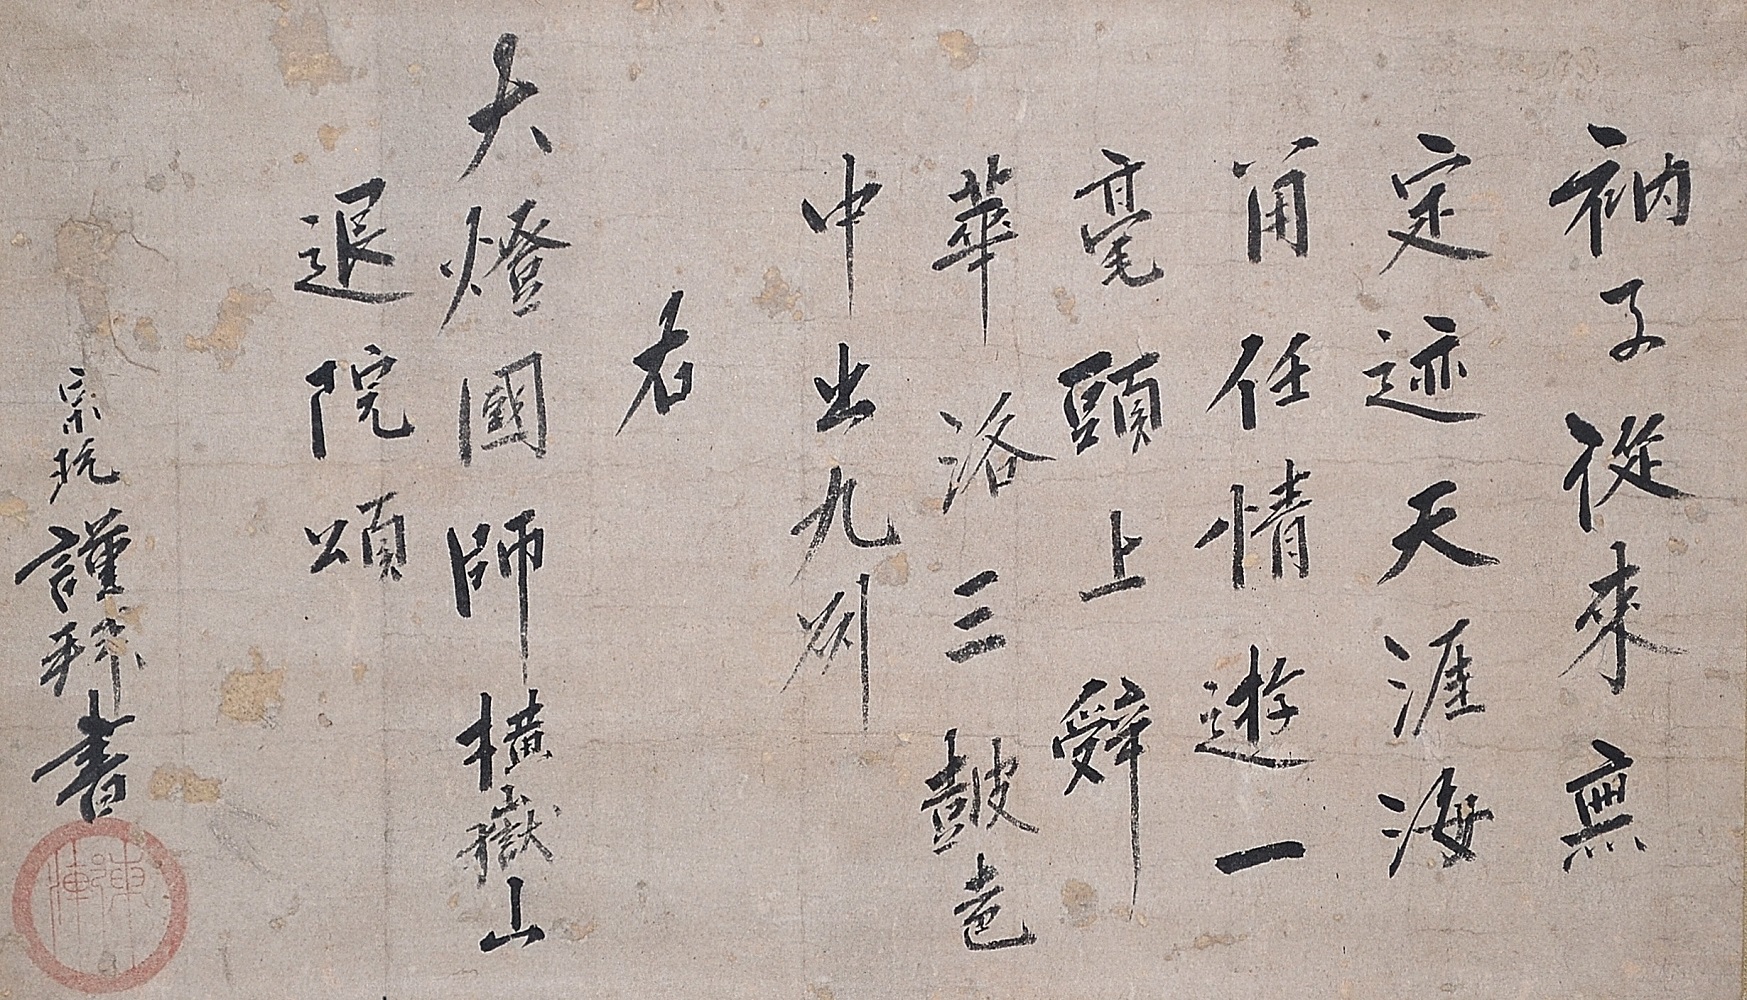 衲子從來無
定迹天涯海
角任情遊一
毫頭上辤
華洛三皷声
中出九州
右
大燈國師橫嶽山
退院頌
宗玩謹拜書